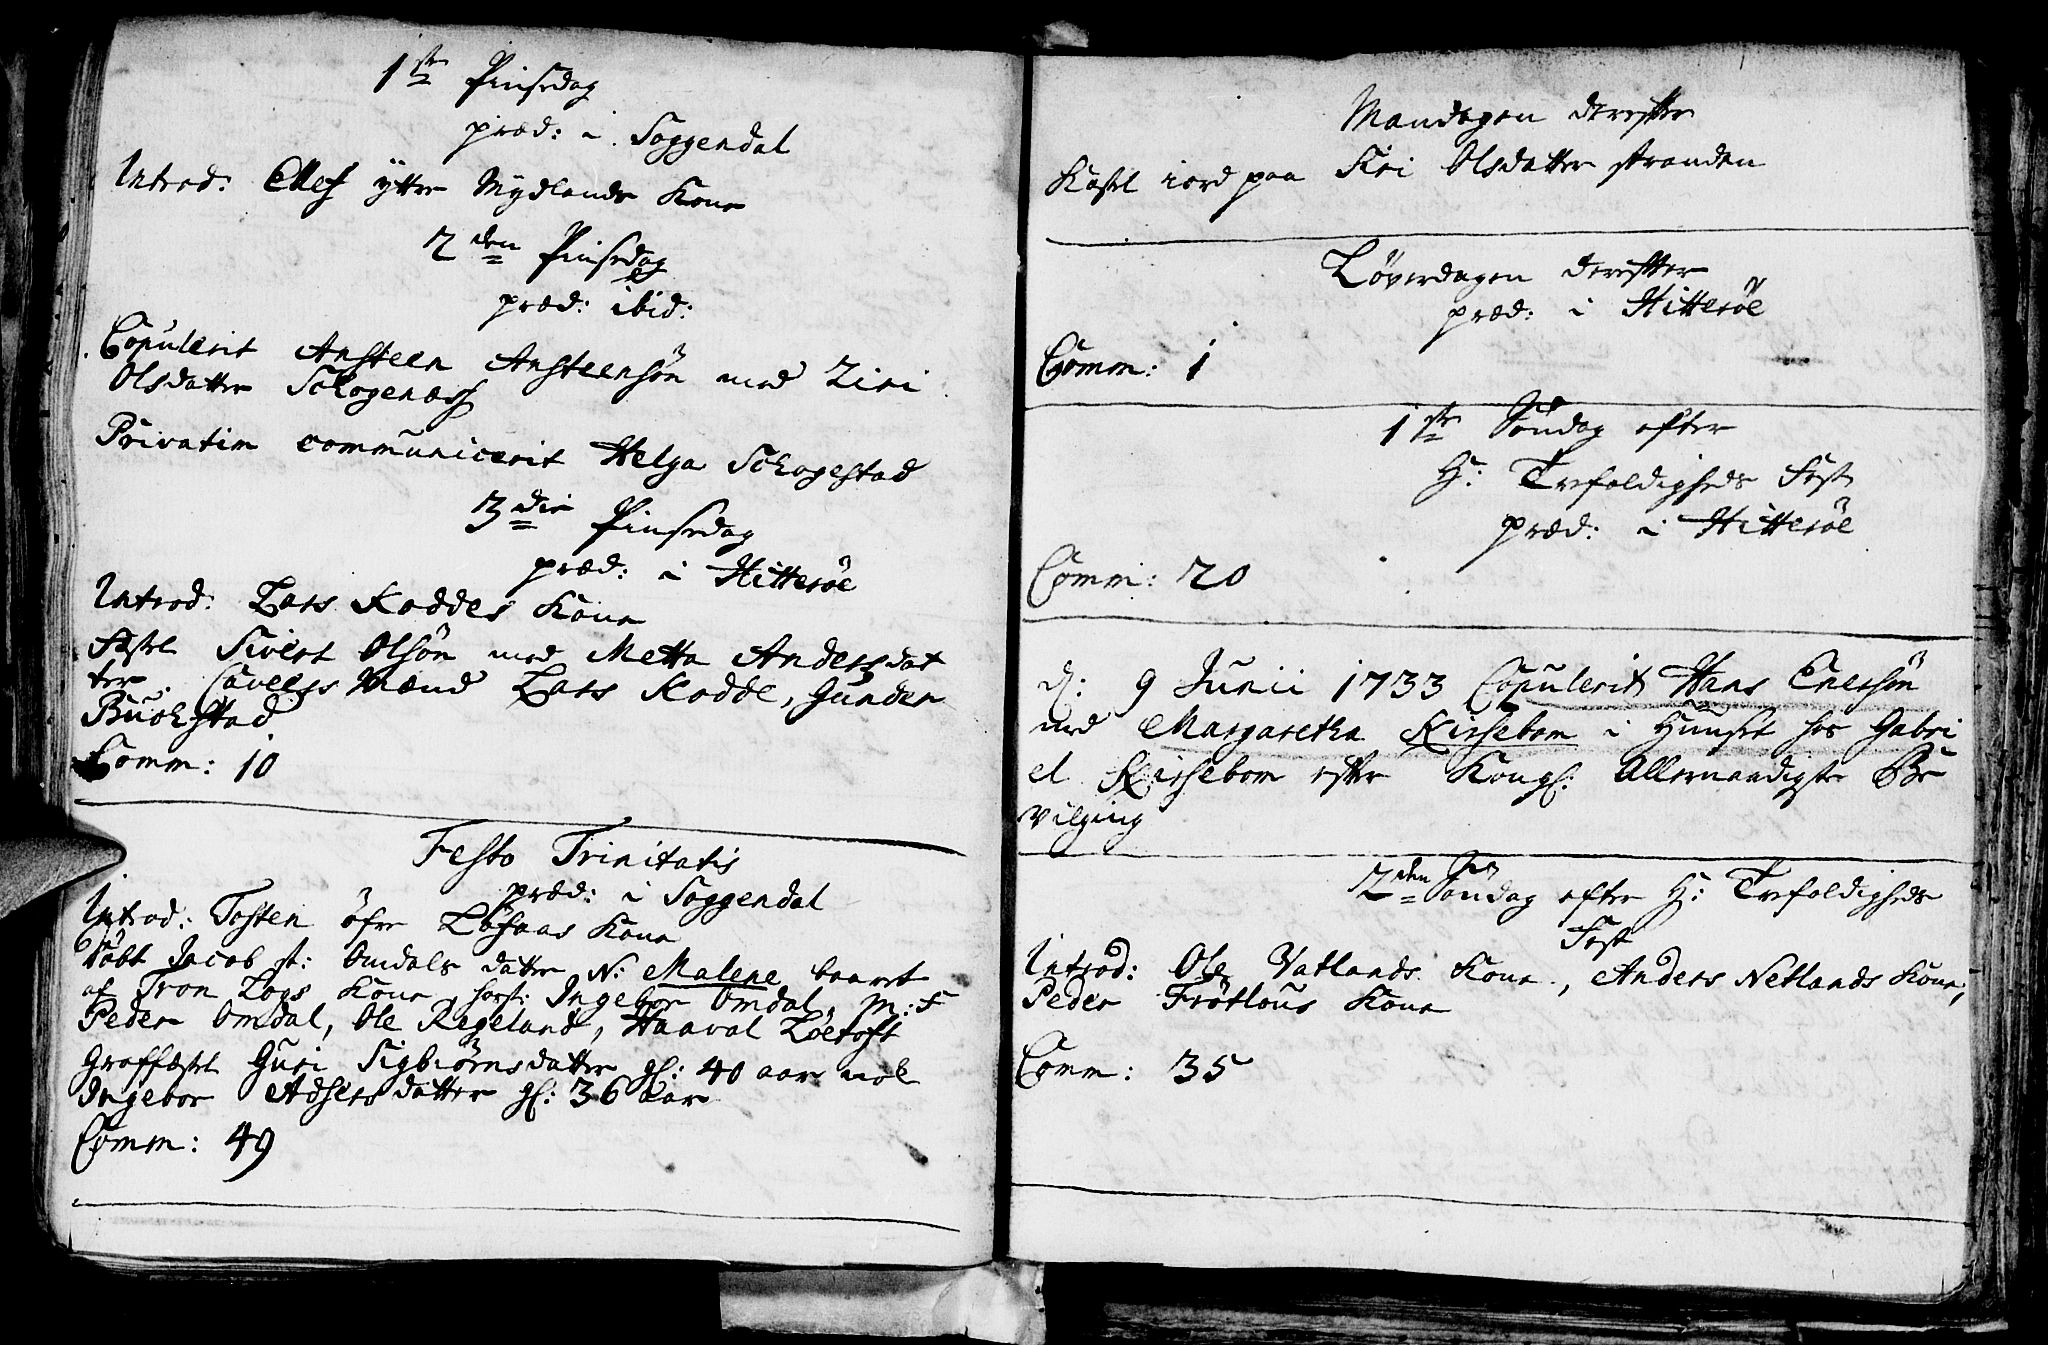 1ste Pinsedag
præd: i Soggendal
Introd: Ellef ÿttre Mydlands Kone
2den Pinsedag
præd: ibid:
Copulerit Ansteen Ansteensön med Ziri
Olsdatter Schogenæss
Privatim communicerit Helga Schogestad
3die Pinsedag
præd: i Hitteröe
Introd: Lars Roddes Kone
Fæstet Sivert Olsön med Metta Andersdat
ter. Cavereds Mænd Lars Rodde, Gunder
Buchstad
Comm: 10
Festo Trinitatis
præd: i Soggendal
Introd: Tosten öfre Kone
Döbt Jacob st: Omdals datter N: Malene baaret
af Tron Logs Kone, host: Ingebor Omdal, M: F
Peder Omdal, Ole Regeland, Haaval Löetoft
Graffæstet Guri Sigbiörnsdatter gl: 40 aar nok
Ingebor Adsersdatter gl: 36 aar
Comm: 49
Mandagen derefter
Kastet iord paa Siri Olsdatter stranden
Löverdagen derefter
præd: i Hitteröe
Comm: 1
1ste Söndag efter
H: Trefoldigheds Fest
præd: i Hitteröe
Comm: 20
d: 9 Junii 1733 Copulerit Hans Enersön
med Margaretha Kirsebom i Huuset hos Gabri
el Kirsebom efter Kongl: Allernaadigste Be
vilging
2den Söndag efter H: Trefoldigheds
Fest
Introd: Ole Vatlands Kone, Anders Netlands Kone,
Peder Frötlous Kone
Comm: 35